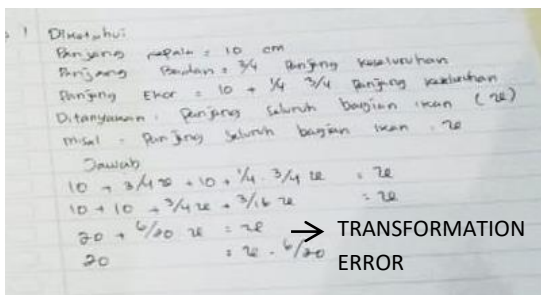 1 Diketahui
Panjang kepala = 10 cm
Panjang Badan = 3/4 Panjang keseluruhan
Panjang Ekor = 10 + 1/4 3/4 Panjang keseluruhan
Ditanyakan : panjang seluruh bagian ikan (x)
misal : Panjang seluruh bagian ikan = x
Jawab
10 + 3/4 x + 10 + 1/4 . 3/4 x = x
10 + 10 + 3/4 x + 3/16 x = x
20 + 6/20 x = x → TRANSFORMATION
20 = x - 6/20 ERROR